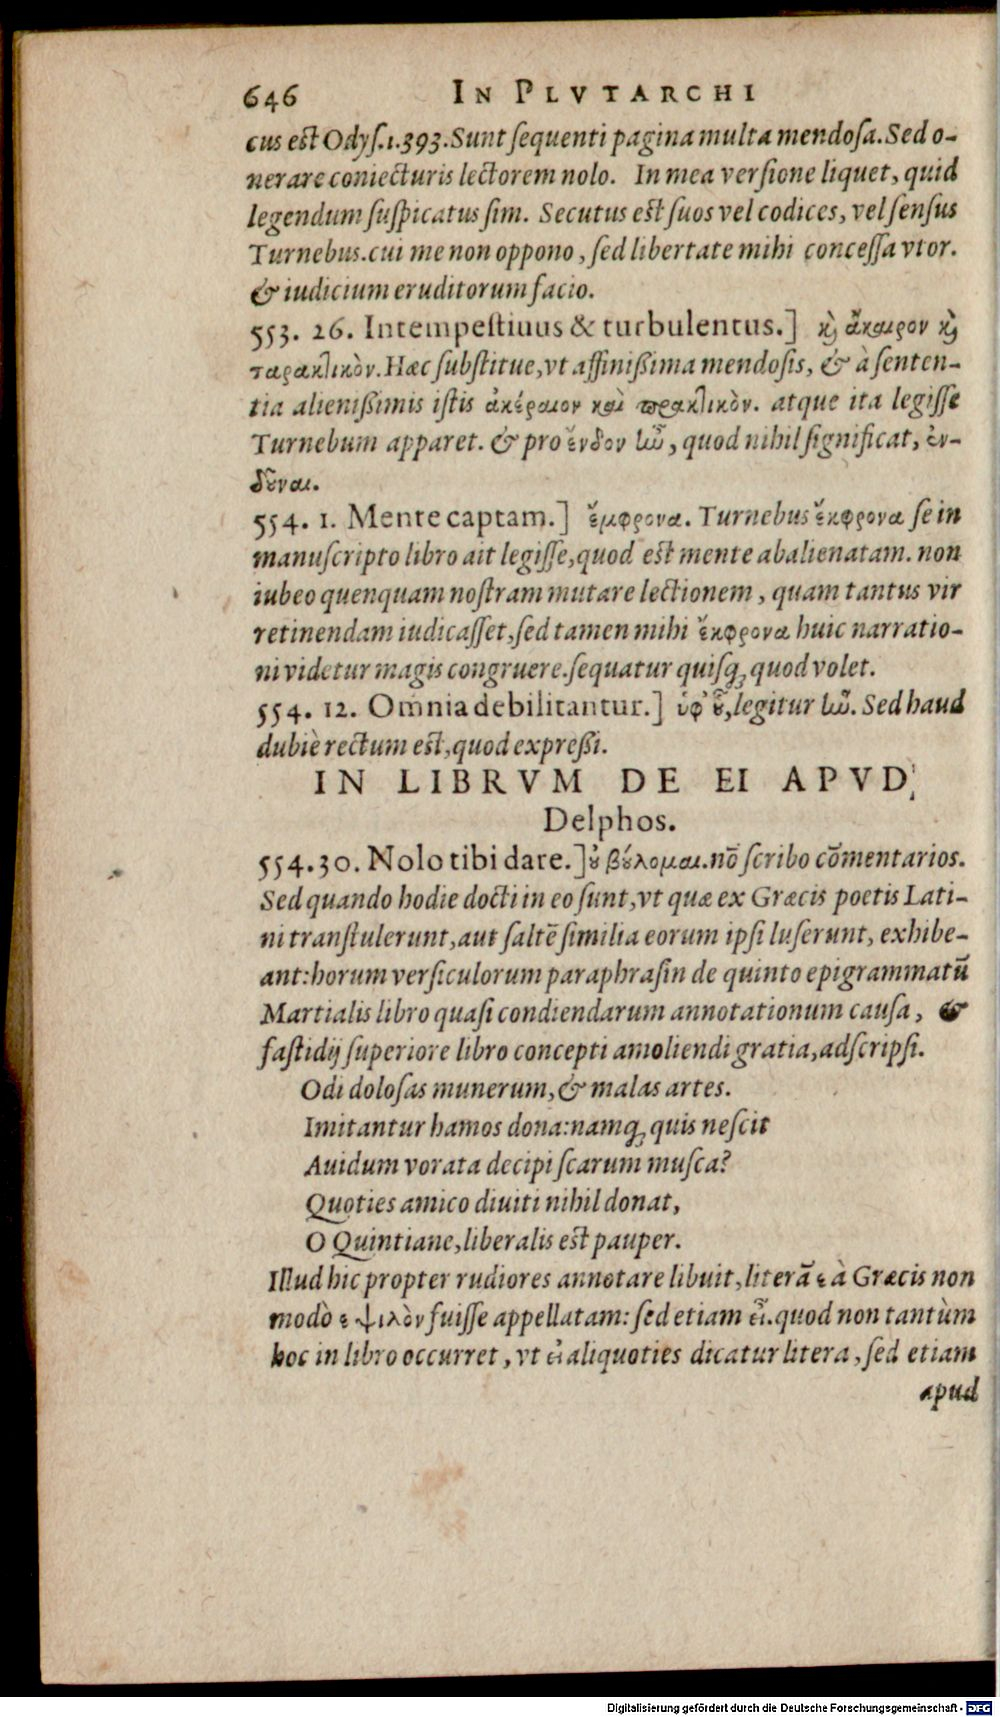 646 IN PLVTARCHI
cus est Odyſ.1.393. Sunt ſequenti pagina multa mendoſa. Sed o-
nerare coniecturis lectorem nolo. In mea verſione liquet, quid
legendum ſuſpicatus ſim. Secutus est ſuos vel codices, vel ſenſus
Turnebus. cui me non oppono, ſed libertate mihi conceſſa vtor.
& iudicium eruditorum facio.
553. 26. Intempeſtiuus & turbulentus.] κ̀ ἄκαιρον κ̀
ταρακτικὸν. Hæc ſubſtitue, vt affinißima mendoſis, & à ſenten-
tia alienißimis iſtis ἀκέραιον καὶ πρακτικὸν. atque ita legiſſe
Turnebum apparet. & pro ἔνδον ὦ, quod nihil ſignificat, ἐν-
δοῦναι.
554. 1. Mente captam.] ἔμφρονα. Turnebus ἔκφρονα ſe in
manuſcripto libro ait legiſſe, quod est mente abalienatam. non
iubeo quenquam noſtram mutare lectionem, quam tantus vir
retinendam iudicaſſet, ſed tamen mihi ἔκφρονα huic narratio-
ni videtur magis congruere. ſequatur quiſq; quod volet.
554. 12. Omnia debilitantur.] ὑφ' οὗ, legitur ὦ. Sed haud
dubiè rectum est, quod expreßi.
IN LIBRVM DE EI APVD
Delphos.
554.30. Nolo tibi dare.] οὐ βούλομαι. nō ſcribo cōmentarios.
Sed quando hodie docti in eo ſunt, vt quæ ex Græcis poetis Lati-
ni tranſtulerunt, aut ſaltē ſimilia eorum ipſi luſerunt, exhibe-
ant: horum verſiculorum paraphraſin de quinto epigrammatū
Martialis libro quaſi condiendarum annotationum cauſa, &
faſtidij ſuperiore libro concepti amoliendi gratia, adſcripſi.
Odi doloſas munerum, & malas artes.
Imitantur hamos dona: namq; quis neſcit
Auidum vorata decipi ſcarum muſca?
Quoties amico diuiti nihil donat,
O Quintiane, liberalis est pauper.
Illud hic propter rudiores annotare libuit, literā ε à Græcis non
modò ε ψιλὸν fuiſſe appellatam: ſed etiam εἶ. quod non tantùm
hoc in libro occurret, vt εἰ aliquoties dicatur litera, ſed etiam
apud
Digitalisierung gefördert durch die Deutsche Forschungsgemeinschaft - DFG